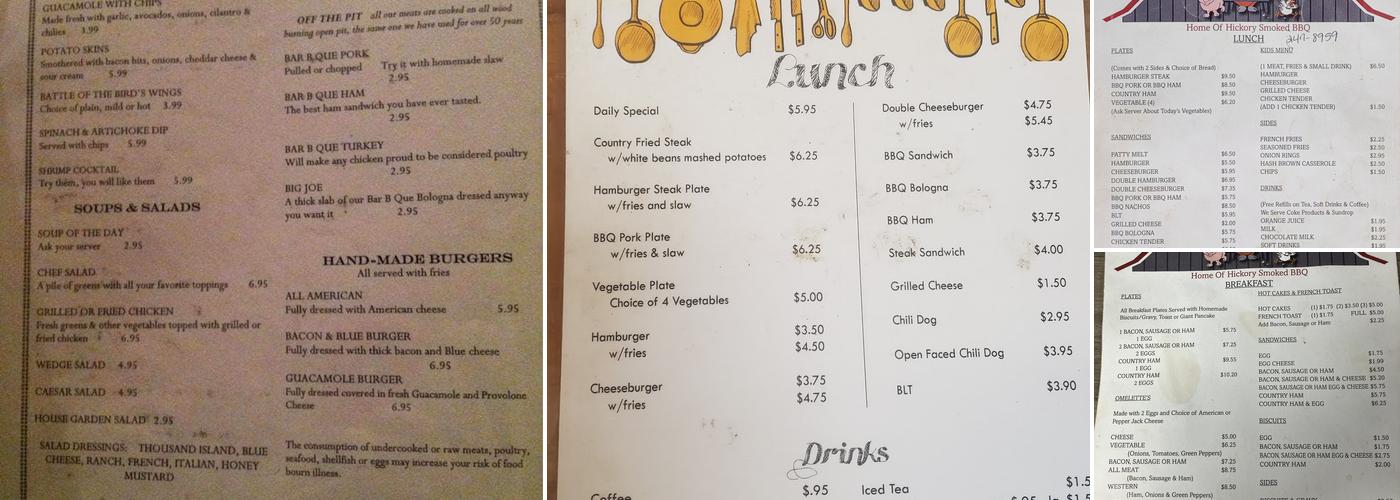 GUACAMOLE WITH CHIPS
Made fresh with garlic, avocados, onions, cilantro &
chilies 3.99
POTATO SKINS
Smothered with bacon bits, onions, cheddar cheese &
sour cream 5.99
BATTLE OF THE BIRD'S WINGS
Choice of plain, mild or hot 3.99
SPINACH & ARTICHOKE DIP
Served with chips 5.99
SHRIMP COCKTAIL
Try them, you will like them 5.99
SOUPS & SALADS
SOUP OF THE DAY
Ask your server 2.95
CHEF SALAD
A pile of greens with all your favorite toppings 6.95
GRILLED OR FRIED CHICKEN
Fresh greens & other vegetables topped with grilled or
fried chicken 6.95
WEDGE SALAD 4.95
CAESAR SALAD 4.95
HOUSE GARDEN SALAD 2.95
SALAD DRESSINGS: THOUSAND ISLAND, BLUE
CHEESE, RANCH, FRENCH, ITALIAN, HONEY
MUSTARD
OFF THE PIT all our meats are cooked on all wood
burning open pit, the same one we have used for over 50 years
BAR B QUE PORK
Pulled or chopped Try it with homemade slaw
2.95
BAR B QUE HAM
The best ham sandwich you have ever tasted.
2.95
BAR B QUE TURKEY
Will make any chicken proud to be considered poultry
2.95
BIG JOE
A thick slab of our Bar B Que Bologna dressed anyway
you want it 2.95
HAND-MADE BURGERS
All served with fries
ALL AMERICAN
Fully dressed with American cheese 5.95
BACON & BLUE BURGER
Fully dressed with thick bacon and Blue cheese
6.95
GUACAMOLE BURGER
Fully dressed covered in fresh Guacamole and Provolone
Cheese 6.95
The consumption of undercooked or raw meats, poultry,
seafood, shellfish or eggs may increase your risk of food
bourn illness.
Lunch
Daily Special $5.95
Country Fried Steak
w/white beans mashed potatoes $6.25
Hamburger Steak Plate
w/fries and slaw $6.25
BBQ Pork Plate
w/fries & slaw $6.25
Vegetable Plate
Choice of 4 Vegetables $5.00
Hamburger $3.50
w/fries $4.50
Cheeseburger $3.75
w/fries $4.75
Double Cheeseburger $4.75
w/fries $5.45
BBQ Sandwich $3.75
BBQ Bologna $3.75
BBQ Ham $3.75
Steak Sandwich $4.00
Grilled Cheese $1.50
Chili Dog $2.95
Open Faced Chili Dog $3.95
BLT $3.90
Drinks
Coffee $.95
Iced Tea
Home Of Hickory Smoked BBQ
LUNCH 247-8959
PLATES
(Comes with 2 Sides & Choice of Bread)
HAMBURGER STEAK $9.50
BBQ PORK OR BBQ HAM $8.50
COUNTRY HAM $9.50
VEGETABLE (4) $6.20
(Ask Server About Today's Vegetables)
SANDWICHES
PATTY MELT $6.50
HAMBURGER $5.50
CHEESEBURGER $5.95
DOUBLE HAMBURGER $6.95
DOUBLE CHEESEBURGER $7.35
BBQ PORK OR BBQ HAM $5.75
BBQ NACHOS $8.50
BLT $5.95
GRILLED CHEESE $2.00
BBQ BOLOGNA $5.75
CHICKEN TENDER $5.75
KIDS MENU
(1 MEAT, FRIES & SMALL DRINK) $6.50
HAMBURGER
CHEESEBURGER
GRILLED CHEESE
CHICKEN TENDER
(ADD 1 CHICKEN TENDER) $1.50
SIDES
FRENCH FRIES $2.25
SEASONED FRIES $2.50
ONION RINGS $2.95
HASH BROWN CASSEROLE $2.50
CHIPS $1.50
DRINKS
(Free Refills on Tea, Soft Drinks & Coffee)
We Serve Coke Products & Sundrop
ORANGE JUICE $1.95
MILK $1.95
CHOCOLATE MILK $2.25
SOFT DRINKS $1.95
Home Of Hickory Smoked BBQ
BREAKFAST
PLATES
All Breakfast Plates Served with Homemade
Biscuits/Gravy, Toast or Giant Pancake
1 BACON, SAUSAGE OR HAM $5.75
1 EGG
2 BACON, SAUSAGE OR HAM $7.25
2 EGGS
COUNTRY HAM $9.55
1 EGG
COUNTRY HAM $10.20
2 EGGS
OMELETTE'S
Made with 2 Eggs and Choice of American or
Pepper Jack Cheese
CHEESE $5.00
VEGETABLE $6.25
(Onions, Tomatoes, Green Peppers)
BACON, SAUSAGE OR HAM $7.25
ALL MEAT $8.75
(Bacon, Sausage & Ham)
WESTERN $8.50
(Ham, Onions & Green Peppers)
HOT CAKES & FRENCH TOAST
HOT CAKES (1) $1.75 (2) $3.50 (3) $5.00
FRENCH TOAST (1) $1.75 FULL $5.00
Add Bacon, Sausage or Ham $2.25
SANDWICHES
EGG $1.75
EGG CHEESE $1.99
BACON, SAUSAGE OR HAM $4.50
BACON, SAUSAGE OR HAM & CHEESE $5.20
BACON, SAUSAGE OR HAM EGG & CHEESE $5.75
COUNTRY HAM $5.75
COUNTRY HAM & EGG $6.25
BISCUITS
EGG $1.50
BACON, SAUSAGE OR HAM $1.75
BACON, SAUSAGE OR HAM EGG & CHEESE $2.75
COUNTRY HAM $2.00
SIDES